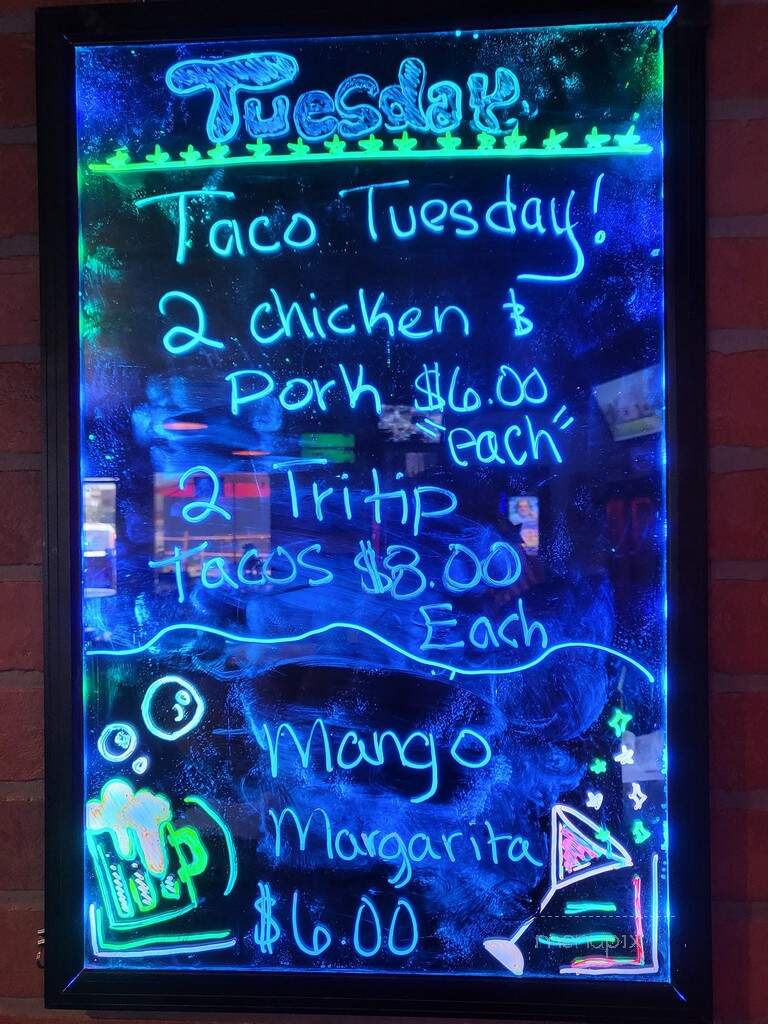 Tuesday
Taco Tuesday!
2 chicken &
Pork $6.00
"each"
2 Tritip
Tacos $8.00
Each
Mango
Margarita
$6.00
menupix